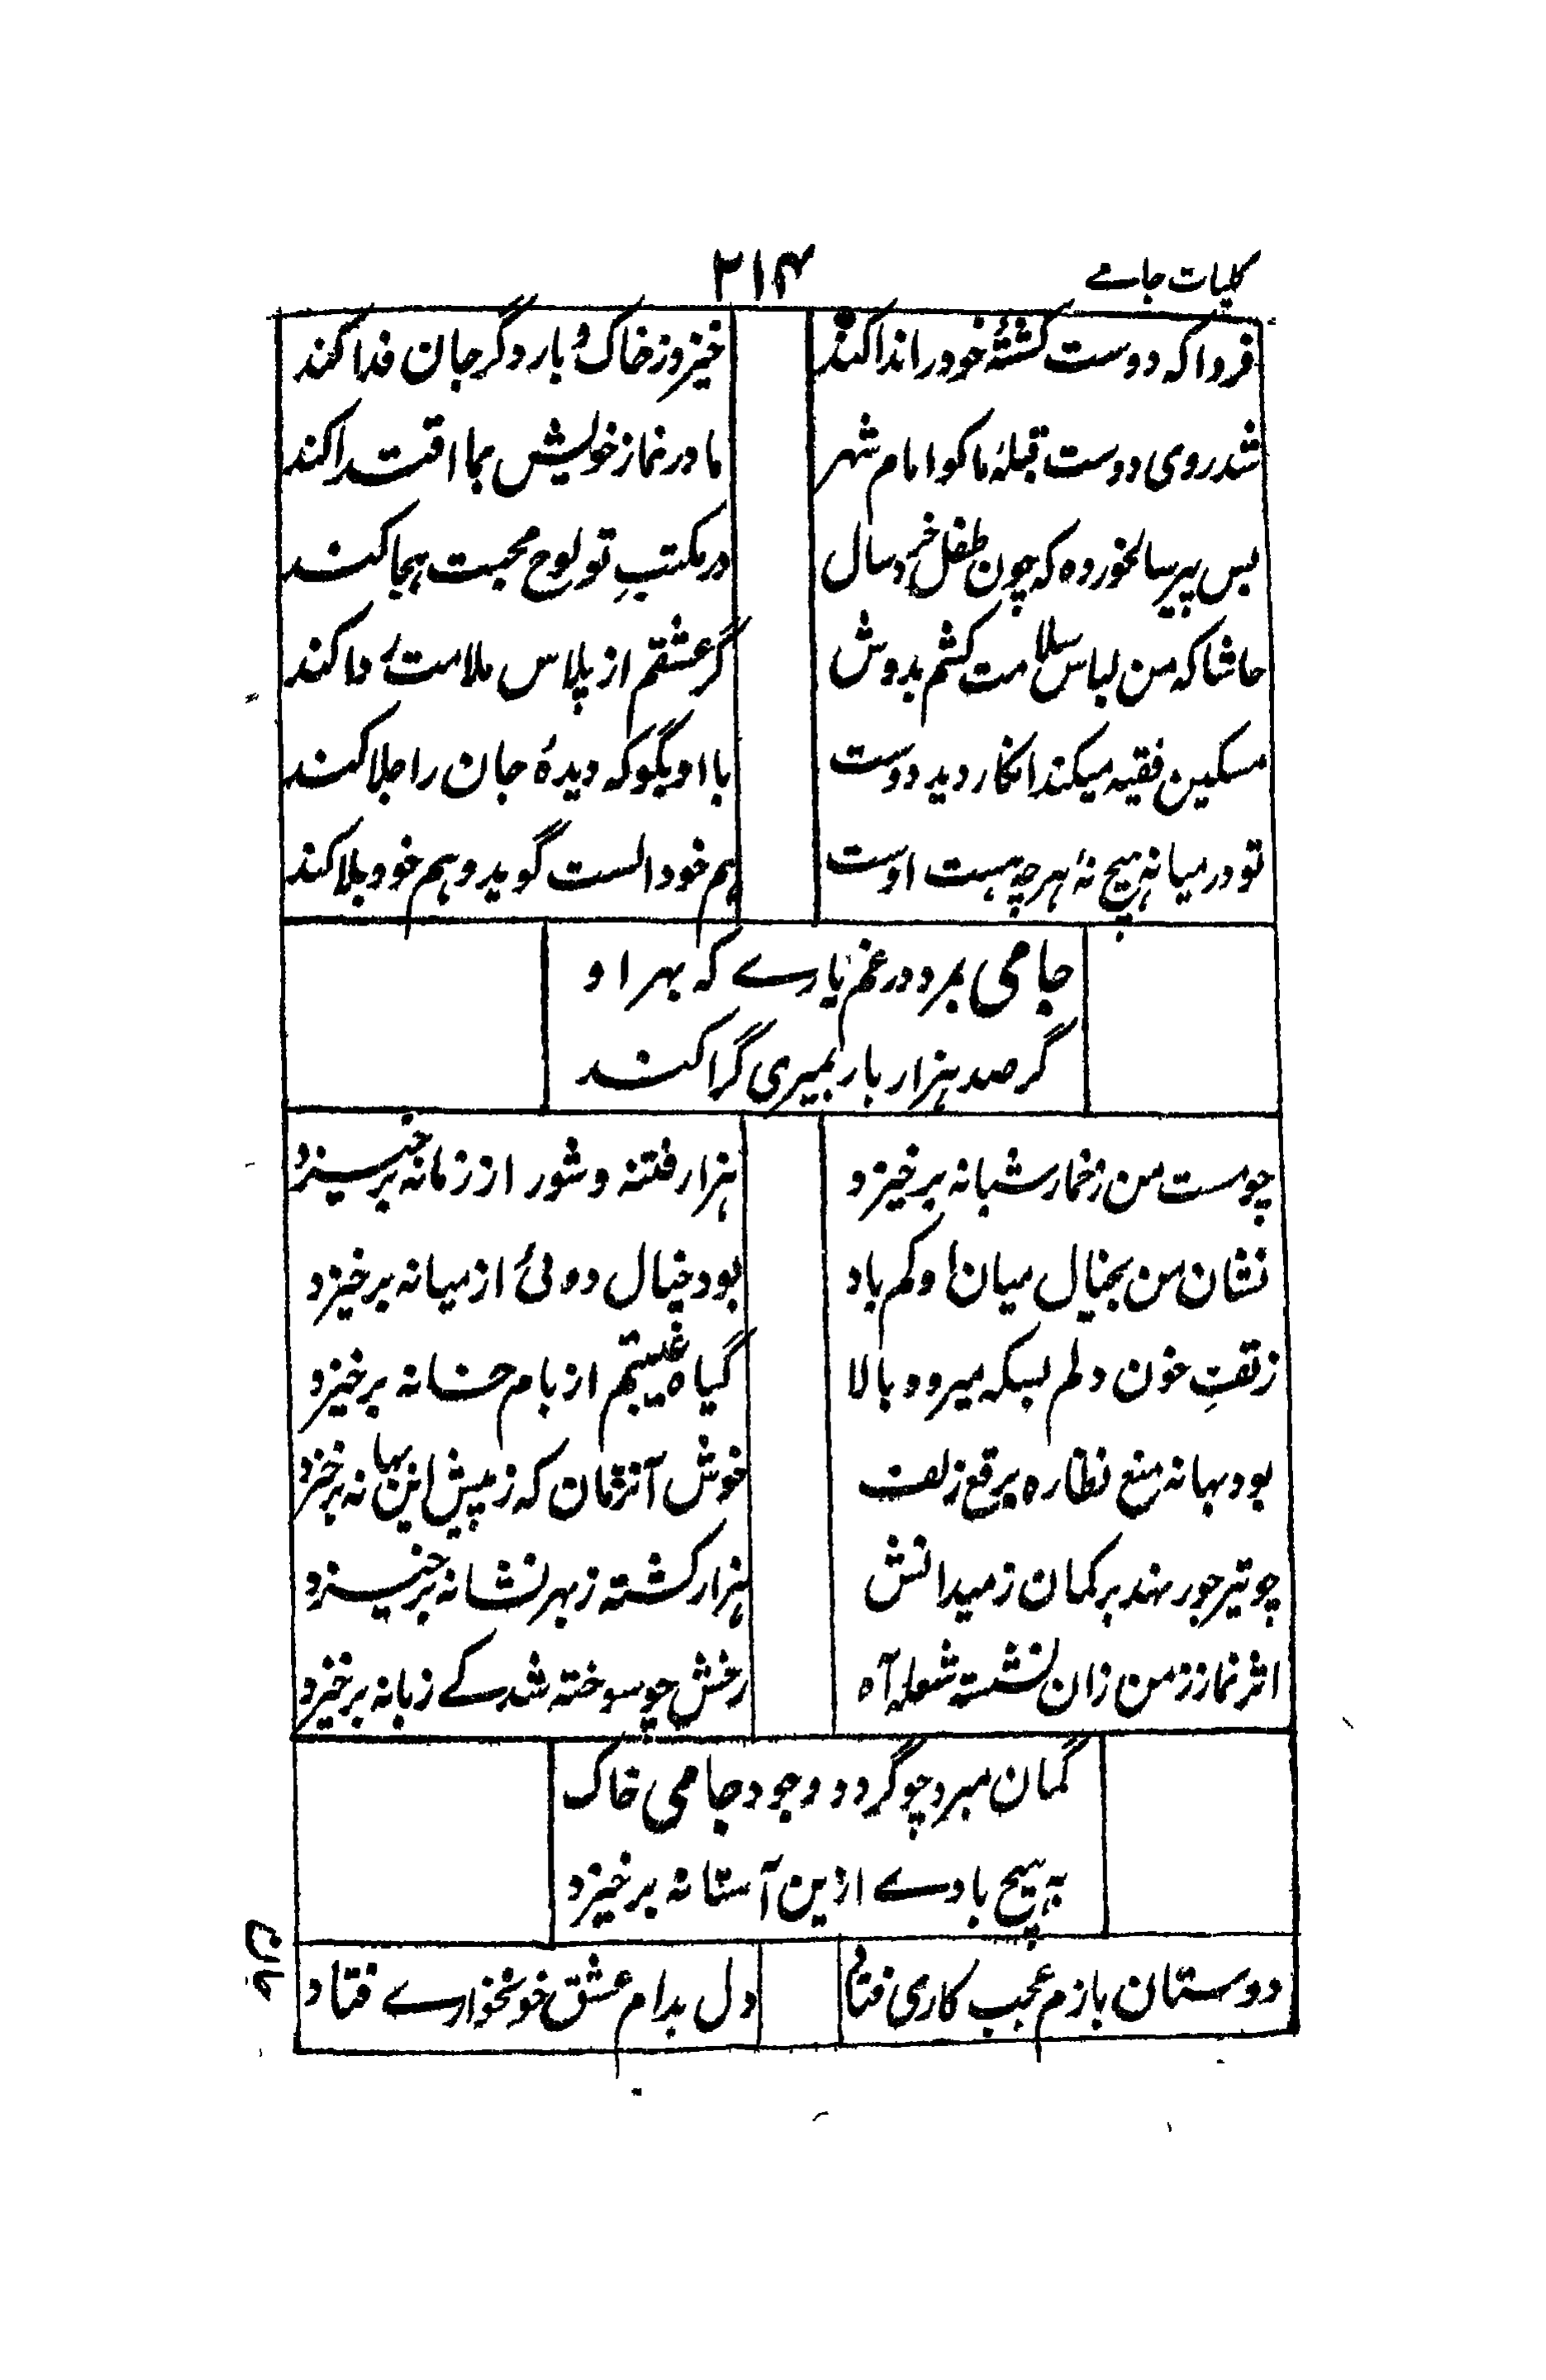 کلیات جامے
۳۱۴
فردا که دوست کشتهٔ خود را ندا کند
خیزد ز خاک و بار دگر جان فدا کند
شد روی دوست قبلهٔ ما کو امام شهر
ما در نماز خویش بما اقتدا کند
بس پیر سالخورده که چون طفل خرد سال
در مکتبِ تو لوح محبت هجا کند
حاشا که من لباس سلامت کشم بدوش
گر عشقم از پلاس ملامت ردا کند
مسکین فقیه میکند انکار دید دوست
با او بگو که دیدهٔ جان را جلا کند
تو درمیانه هیچ نهٔ هرچه هست اوست
هم خود الست گوید و هم خود بلا کند
جامی بمرد در غم یارے که بهر او
گر صد هزار بار بمیری گرا کند
چو مست من ز خمار شبانه برخیزد
هزار فتنه و شور از زمانه برخیزد
نشان من بخیال میان او کم باد
بود خیال دوئی از میانه برخیزد
ز تفتِ خون دلم بسکه میرود بالا
گیاه غیبتم از بام خانه برخیزد
بود بهانه منع نظاره برقع زلف
خوش آنزمان که ز پیش این بهانه برخیزد
چو تیر جور نهد بر کمان ز میدانش
هزار کشته ز بهر نشانه برخیزد
اثر نماز ز من زان نشسته شعله آه
رخش چو سوخته شد کے زبانه برخیزد
گمان مبرد چو گردد وجود جامی خاک
به هیچ بادے ازین آستانه برخیزد
دوستان بازم عجب کاری فتاد
دل بدام عشق خونخوارے فتاد